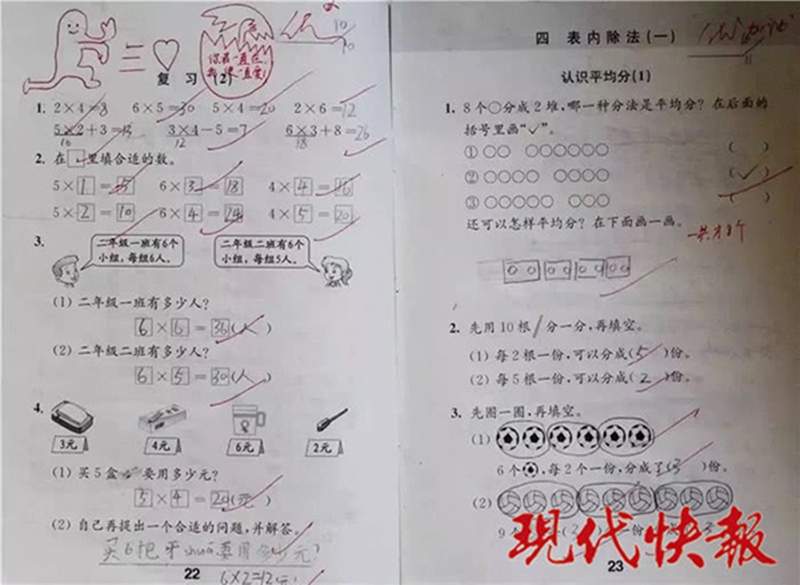 复 习 (2)
10
10
1. 2×4=8 6×5=30 5×4=20 2×6=12
5×2+3=13 3×4-5=7 6×3+8=26
10 12 18
2. 在□里填合适的数。
5×1=5 6×3=18 4×4=16
5×2=10 6×4=24 4×5=20
3.
二年级一班有6个
小组,每组6人。
二年级二班有6个
小组,每组5人。
(1) 二年级一班有多少人?
6×6=36(人)
(2) 二年级二班有多少人?
6×5=30(人)
4.
3元 4元 6元 2元
(1) 买5盒 要用多少元?
5×4=20(元)
(2) 自己再提出一个合适的问题,并解答。
买6把牙shuā要用多少元?
6×2=12
22
四 表内除法(一)
认识平均分(1)
1. 8个○分成2堆,哪一种分法是平均分? 在后面的
括号里画“✓”。
① ( )
② (✓)
③ ( )
还可以怎样平均分? 在下面画一画。
一共才8个
2. 先用10根 分一分,再填空。
(1) 每2根一份,可以分成(5)份。
(2) 每5根一份,可以分成(2)份。
3. 先圈一圈,再填空。
(1)
6个 ,每2个一份,分成了(3)份。
(2)
9个
现代快報
23